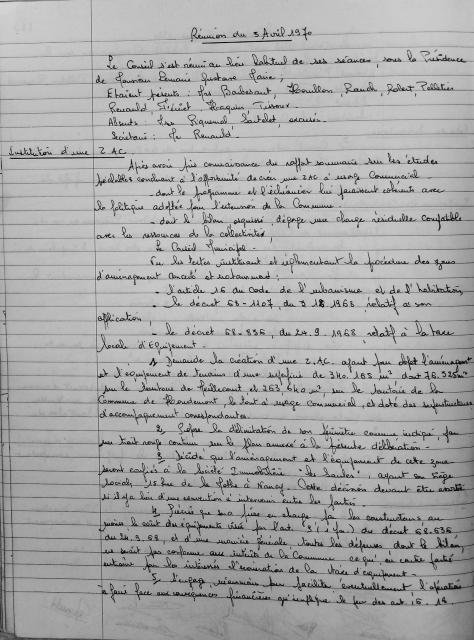 Réunion du 3 Avril 1970
Le Conseil s'est réuni au lieu habituel de ses séances, sous la Présidence
de Monsieur Gustave Maire,
Etaient présents : Mrs Barbesant, Houillon, Rauch, Robert, Pelletier
Renauld, Haquin Tissour
Absents : Mrs excusés
Secrétaire : Mr Renauld
Institution d'une Z.A.C.
Après avoir pris connaissance du rapport sommaire sur les études
préalables concluant à l'opportunité de créer une ZAC à usage Commercial
- dont le programme et l'échéancier lui paraissent cohérents avec
la politique adoptée pour l'extension de la Commune
- dont le bilan esquissé, dégage une charge résiduelle compatible
avec les ressources de la collectivité,
Le Conseil Municipal
Vu les textes instituant et réglementant la procédure des zones
d'aménagement concerté et notamment :
- l'article 16 du Code de l'urbanisme et de l'habitation
- le décret 68-1107, du 3 12 1968 relatif à son
application,
- le décret 68-836, du 24.9.1968, relatif à la taxe
locale d'Equipement
1. Demande la création d'une Z.A.C. ayant pour objet l'aménagement
et l'équipement de terrains d'une superficie de 340.165 m² dont 76.525 m²
sur le territoire de et 263.640 m², sur le territoire de la
Commune de Houdemont, le tout à usage commercial, et doté des infrastructures
d'accompagnement correspondantes.
2. Propose la délimitation de son périmètre comme indiqué, par
un trait rouge continu sur le plan annexé à la présente délibération
3. Décide que l'aménagement et l'équipement de cette zone
seront confiés à la Société Immobilière "les Saules", ayant son siège
social, 15 rue de la à Nancy. Cette décision devant être assortie
s'il y a lieu d'une convention à intervenir entre les parties.
4. Précise que sa prise en charge par les constructeurs, au
moins le coût des équipements visés par l'art. du décret 68.836
du 24.9.68, et d'une manière générale toutes les dépenses, dont le bilan
ne serait pas conforme aux intérêts de la Commune ce qui, en contre partie
entraîne pour les intéressés l'exonération de la taxe d'équipement
5. S'engage néanmoins pour faciliter éventuellement l'opération
à faire face aux conséquences financières qu'implique le jeu des art. 15. 18